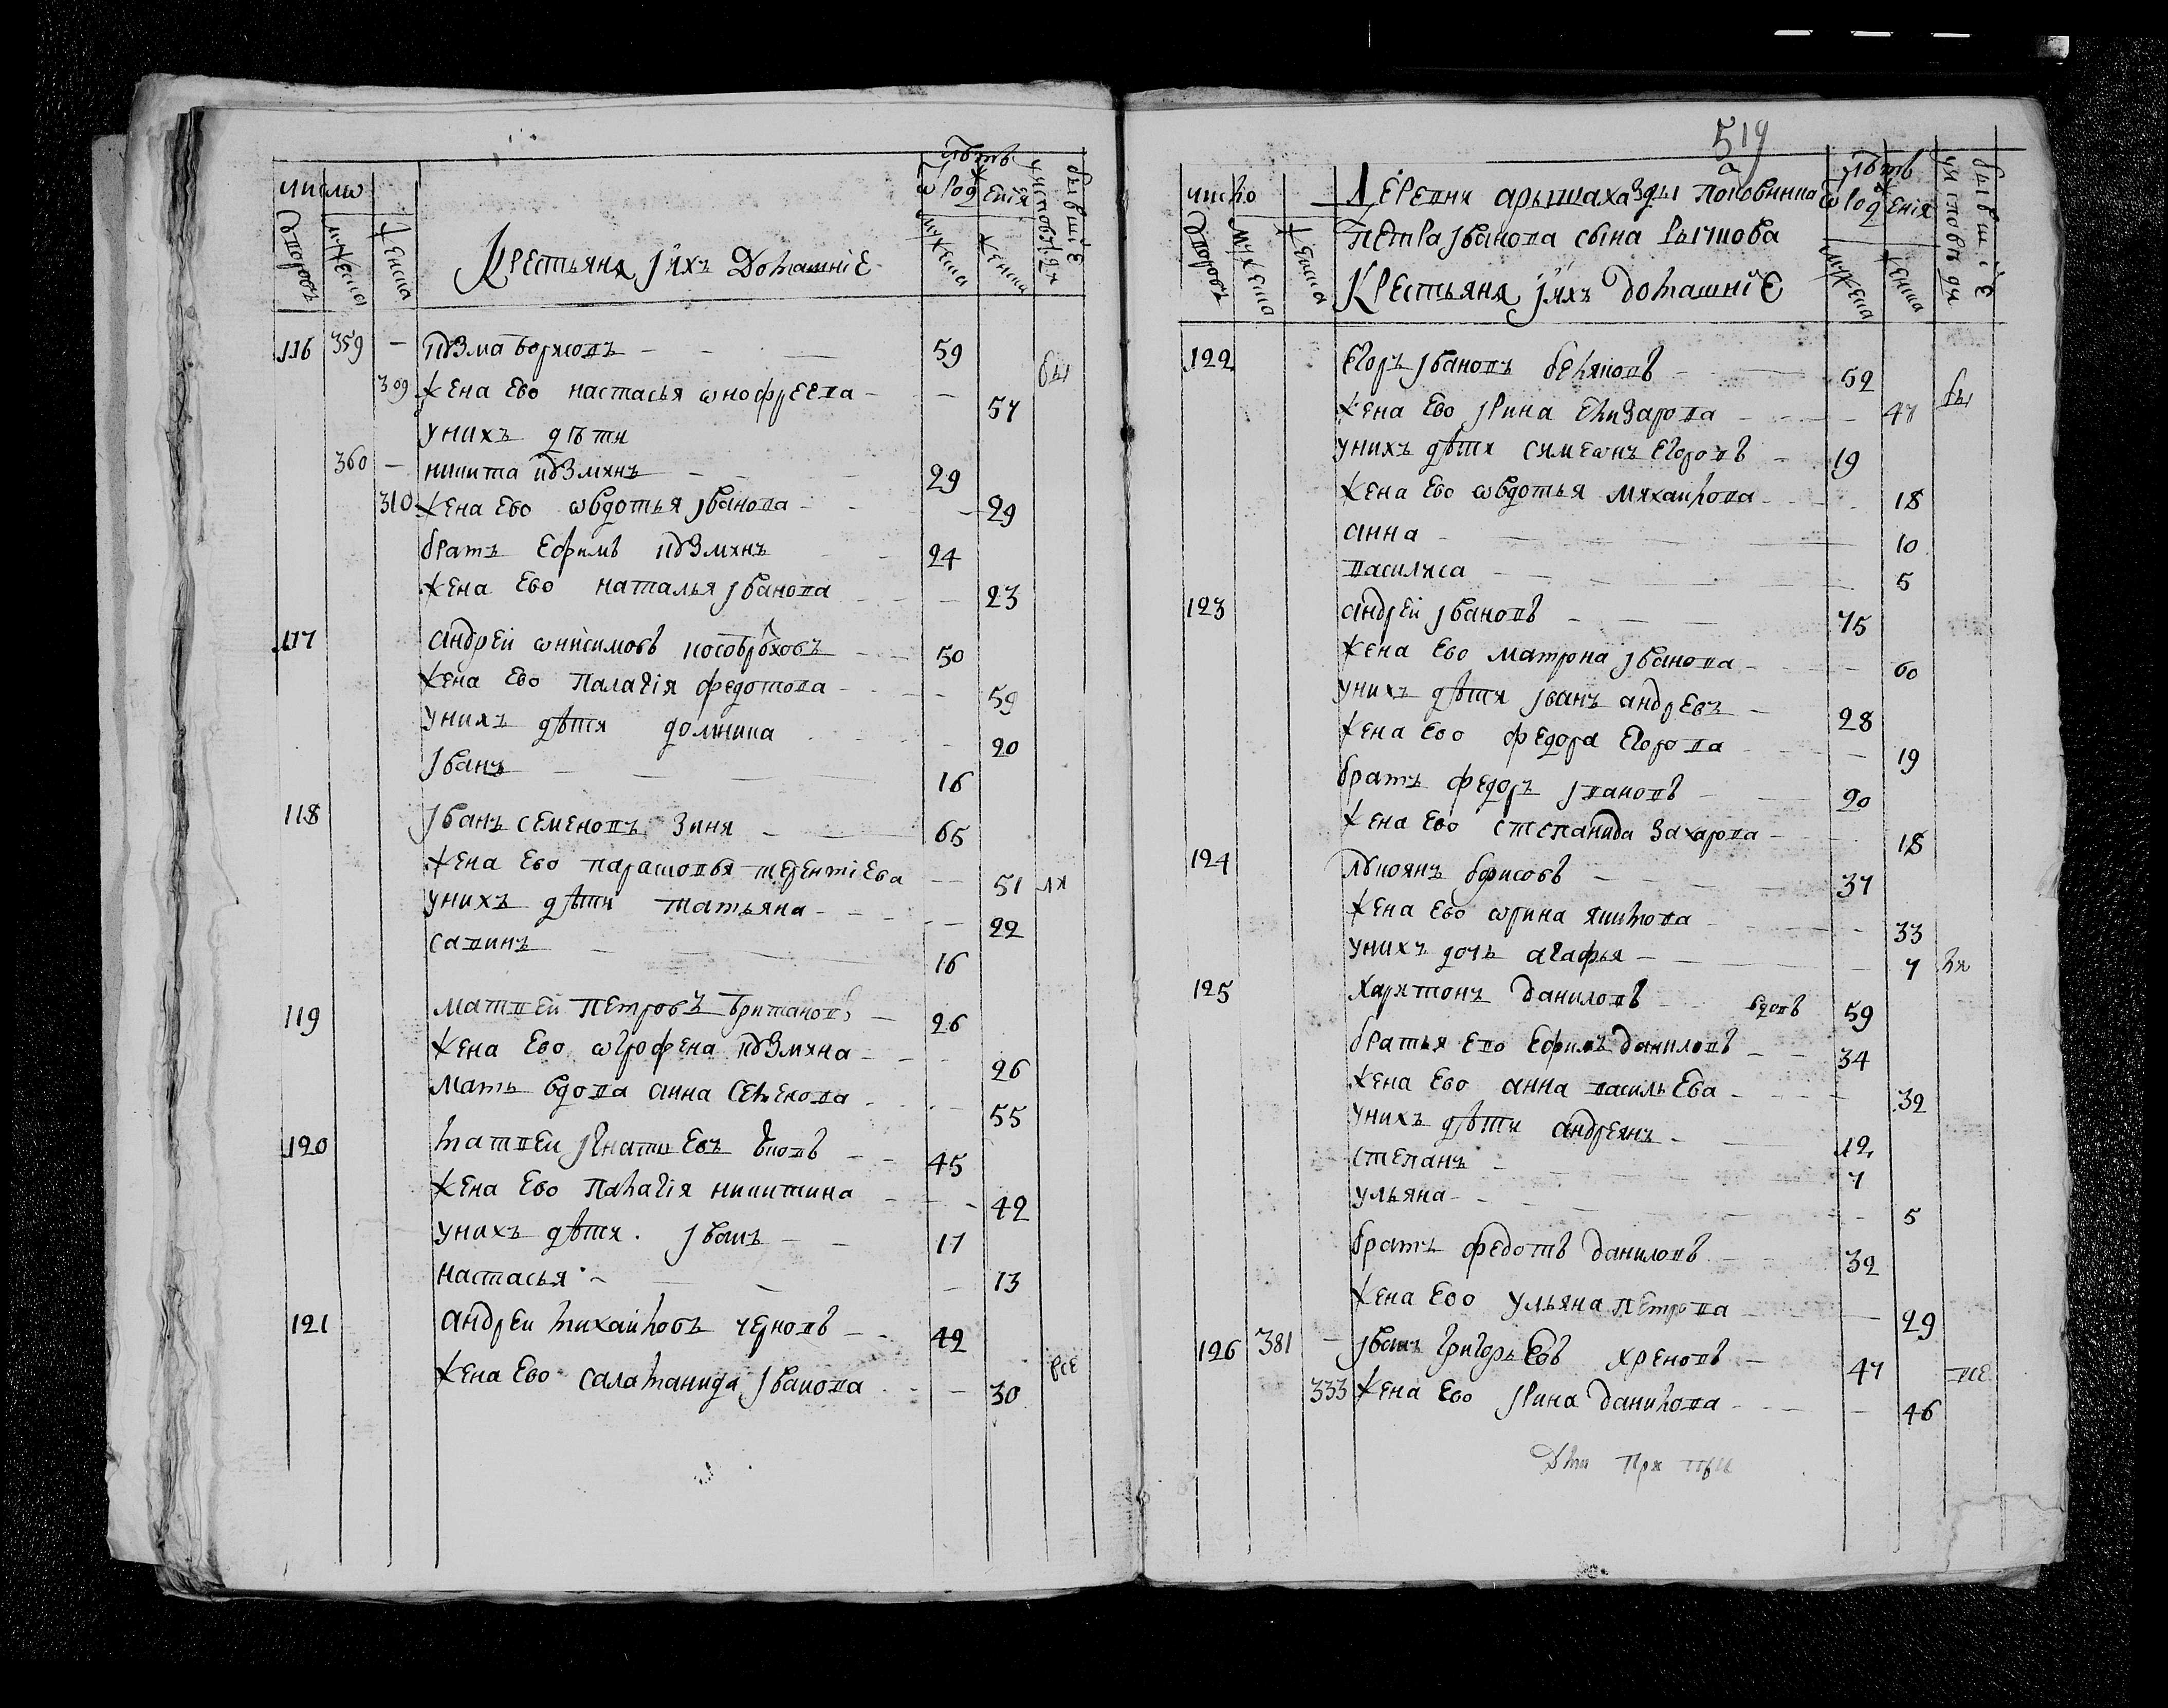 число
дворовъ
мужеска
женска
Крестьяня и ихъ домашние
лѣтъ
ѡ рожденія
мужеска
женска
бывшіе у исповѣди
116 359 – кузма борисовъ 59
309 жена ево настасья ѡнофреева 57 бы
у нихъ дѣти
360 – никита кузминъ 29
310 жена ево ѡвдотья иванова 29
братъ ефимъ кузминъ 24
жена ево наталья иванова 23
117 андрей ѡнисимовъ 50
жена ево палагія федотова 59
у нихъ дѣти домника 20
иванъ 16
118 иванъ семеновъ зиня 65
жена ево парасковья терентіева 51 ли
у нихъ дѣти татьяна 22
савинъ 16
119 матвей петровъ британовъ 26
жена ево ѡгрофена кузмина 26
мать вдова анна семенова 55
120 матвей игнатиевъ 45
жена ево палагія никитина 42
у нихъ дѣти иванъ 17
настасья 13
121 андреи михаиловъ черновъ 42
жена ево саламанида иванова 30 все
519
число
дворовъ
мужеска
женска
Деревни арышахазды половинна
петра иванова сына рычкова
Крестьяня и ихъ домашніе
лѣтъ
ѡ рожденія
мужеска
женска
бывшіе у исповѣди
122 егоръ ивановъ беляковъ 52
жена ево ирина елизарова 47 бы
у нихъ дѣти симеѡнъ егоровъ 19
жена ево ѡвдотья михаилова 18
анна 10
василиса 5
123 андрей ивановъ 75
жена ево матрона иванова 60
у нихъ дѣти иванъ андревъ 28
жена ево федора егорова 19
братъ федоръ ивановъ 20
жена ево степанида захарова 18
124 лукоянъ борисовъ 37
жена ево ѡрина якимова 33
у нихъ дочь агафья 7 ли
125 харитонъ даниловъ вдовъ 59
братья ево ефимъ даниловъ 34
жена ево анна васильева 32
у нихъ дѣти андреянъ 12
степанъ 7
ульяна 5
братъ федотъ даниловъ 32
жена ево ульяна петрова 29
126 381 – иванъ григорьевъ хреновъ 47 все
333 жена ево ирина данилова 46